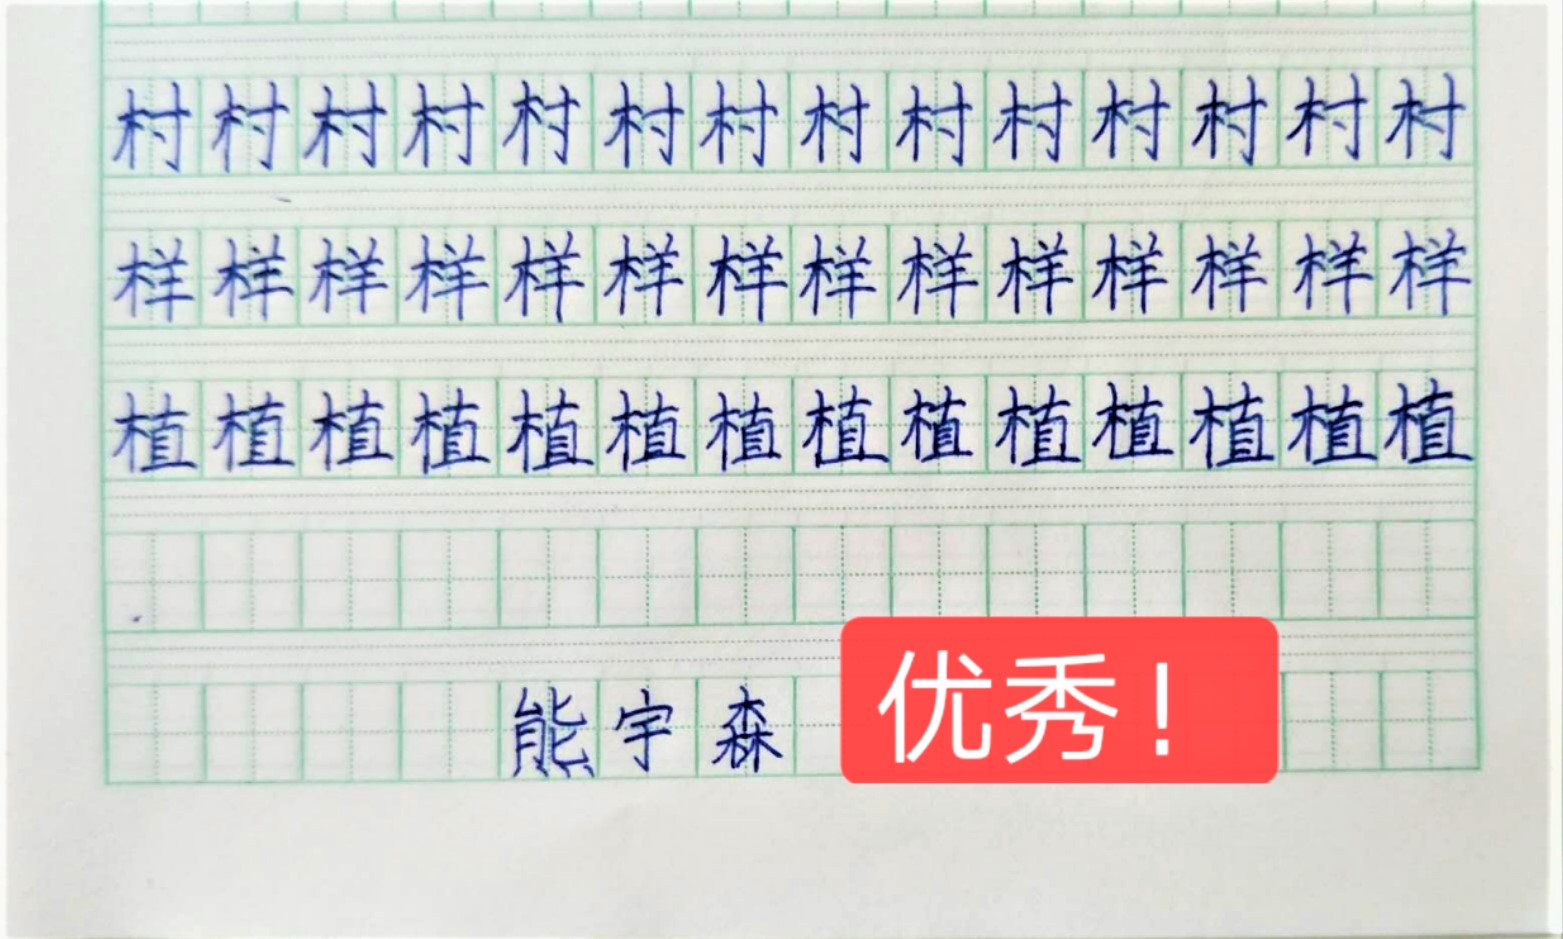 村村村村村村村村村村村村村村
样样样样样样样样样样样样样样
植植植植植植植植植植植植植植
熊宇森
优秀！